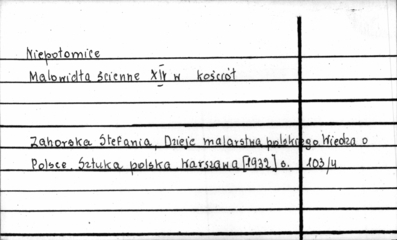 Niepołomice
Malowidła ścienne XIV w kościół
Zahorska Stefania, Dzieje malarstwa polskiego Wiedza o
Polsce. Sztuka polska. Warszawa [1932] s. 103/4.